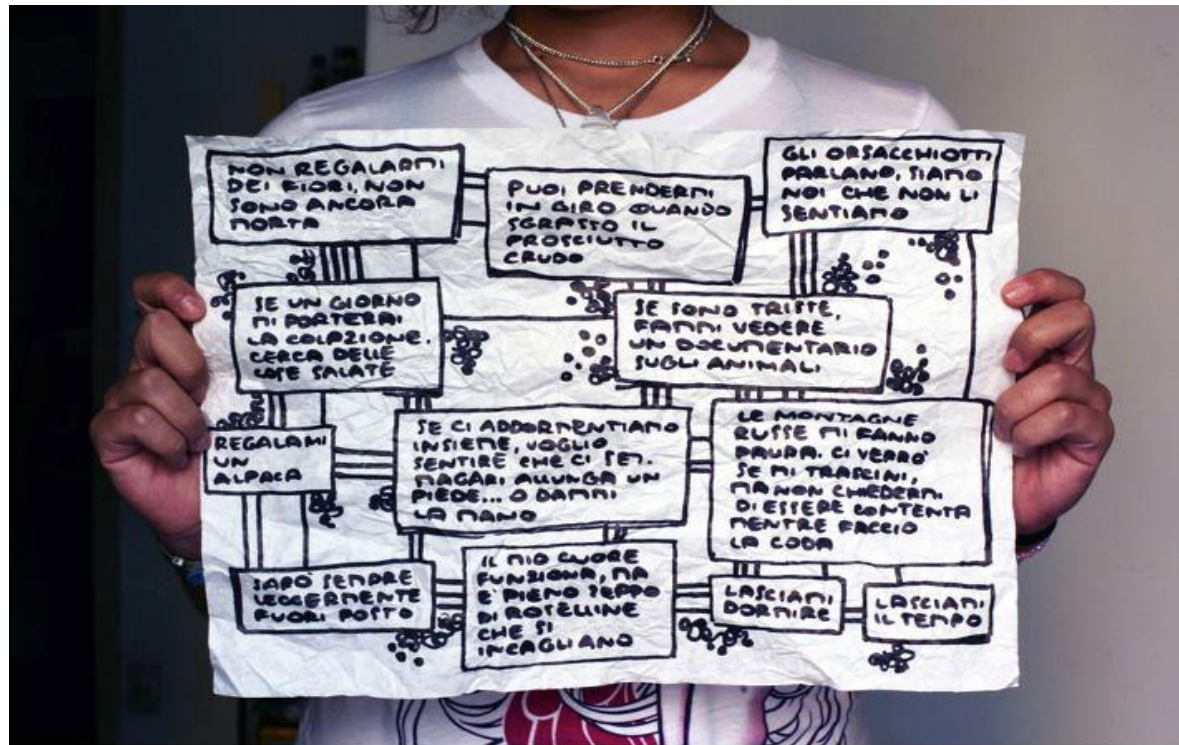 NON REGALARMI
DEI FIORI, NON
SONO ANCORA
MORTA
PUOI PRENDERMI
IN GIRO QUANDO
SGRASSO IL
PROSCIUTTO
CRUDO
GLI ORSACCHIOTTI
PARLANO, SIAMO
NOI CHE NON LI
SENTIAMO
SE UN GIORNO
MI PORTERAI
LA COLAZIONE,
CERCA DELLE
COSE SALATE
SE SONO TRISTE,
FAMMI VEDERE
UN DOCUMENTARIO
SUGLI ANIMALI
REGALAMI
UN
ALPACA
SE CI ADDORMENTIAMO
INSIEME, VOGLIO
SENTIRE CHE CI SEI.
MAGARI ALLUNGA UN
PIEDE... O DAMMI
LA MANO
LE MONTAGNE
RUSSE MI FANNO
PAURA. CI VERRÒ
SE MI TRASCINI,
MA NON CHIEDERMI
DI ESSERE CONTENTA
MENTRE FACCIO
LA CODA
SARÒ SEMPRE
LEGGERMENTE
FUORI POSTO
IL MIO CUORE
FUNZIONA, MA
È PIENO ZEPPO
DI ROTELLINE
CHE SI
INCAGLIANO
LASCIAMI
DORMIRE
LASCIAMI
IL TEMPO